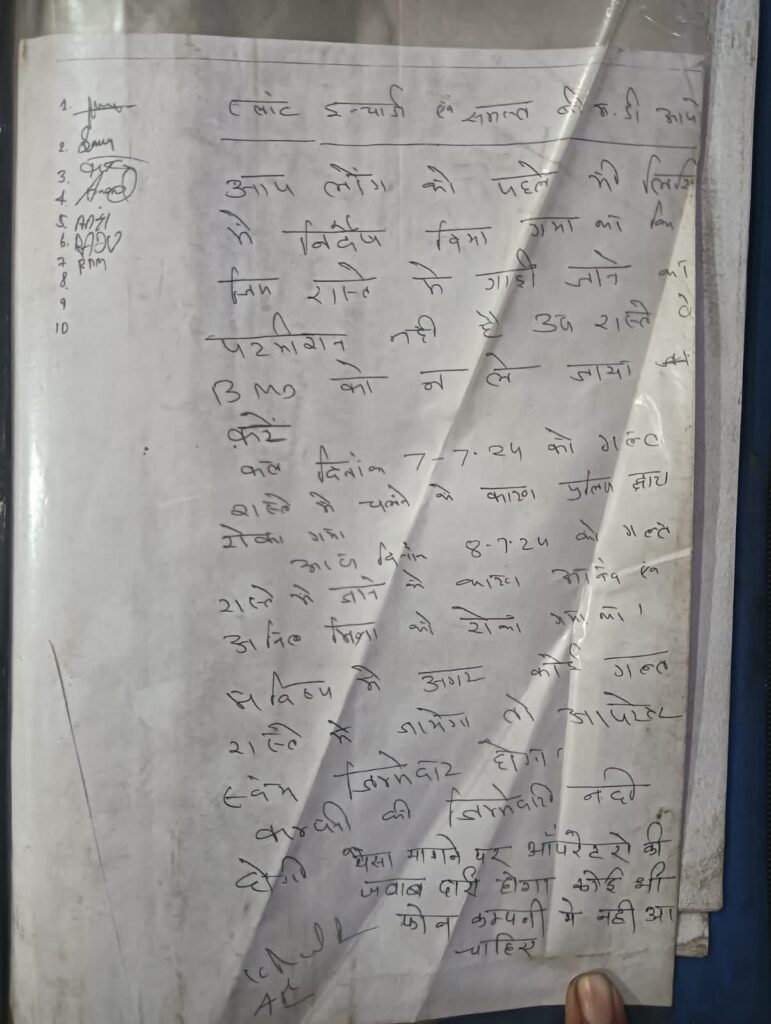 1.
2.
3.
4.
5. ANJI
6. RAJU
7 RAM
8
9
10
प्लांट इन्चार्ज एवं समस्त बी.म.डी आपरे
आप लोग को पहले भी लिखि
में निर्देश दिया गया था कि
जिस रास्ते में गाड़ी जाने का
परमीशन नही है उस रास्ते से
BMD को न ले जाया
करें
कल दिनांक 7-7-24 को गलत
रास्ते में चलने के कारण पुलिस द्वारा
रोका गया
आज दिनांक 8-7-24 को गलत
रास्ते में जाने के कारण एवं
अनिल मिश्रा को रोका गया था।
भविष्य में अगर कोई गलत
रास्ते में जायेगा तो आपरेटर
स्वंय जिम्मेदार होगा
कम्पनी की जिम्मेदारी नही
होगी पैसा मागने पर ऑपरेटरो की
जवाब दारी होगा कोई भी
फोन कम्पनी मे नही आ
चाहिए